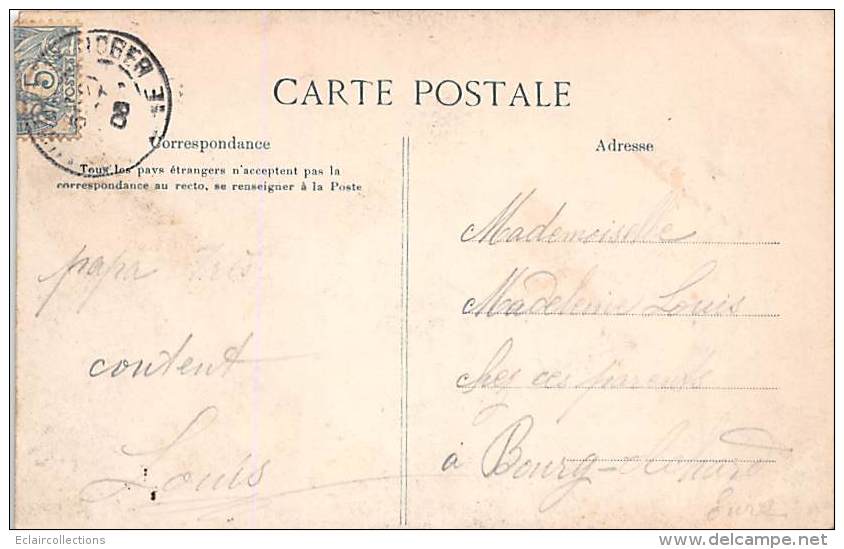 5
POSTES
CARTE POSTALE
Correspondance
Tous les pays étrangers n'acceptent pas la
correspondance au recto, se renseigner à la Poste
papa très
content
Louis
Adresse
Mademoiselle
Madeleine Louis
chez ces parents
à Bourg-
Eure
Eclaircollections
www.delcampe.net